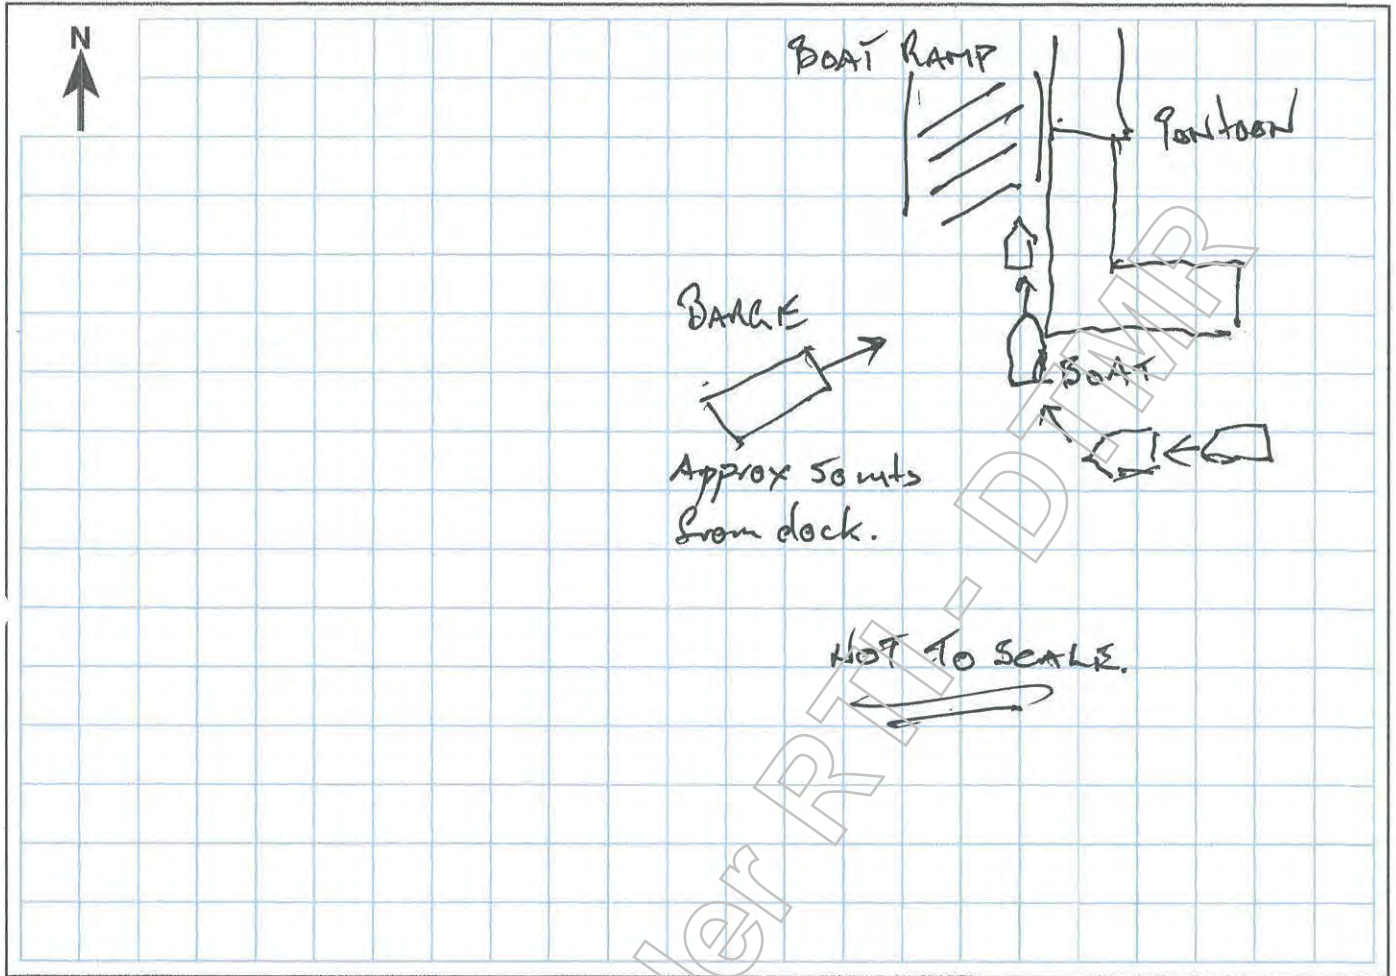 N
BOAT RAMP
PONTOON
BARGE
BOAT
Approx 50 mts
from dock.
NOT TO SCALE.
der RTI - DTMR